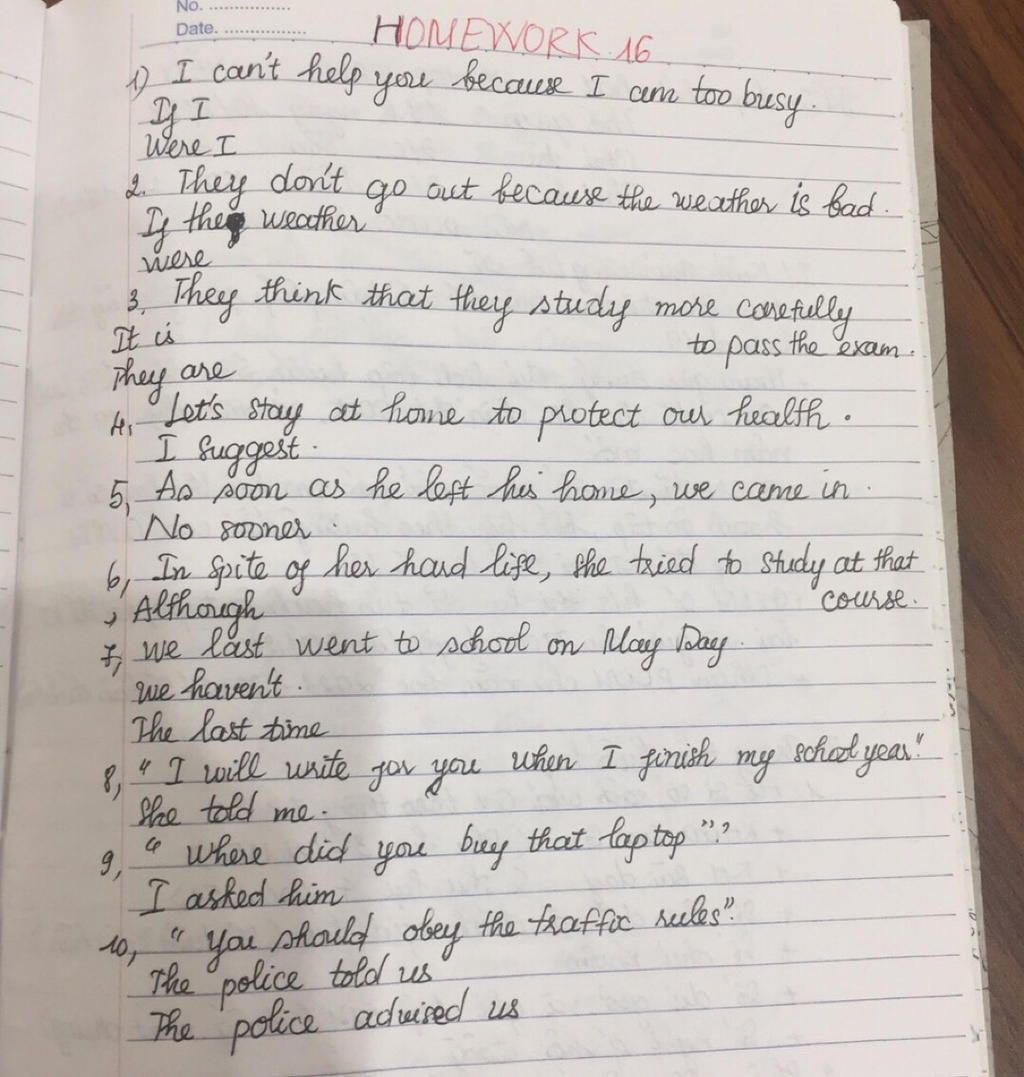 No. ................
Date. ................
HOMEWORK 16
1) I can't help you because I am too busy.
If I
Were I
2. They don't go out because the weather is bad.
If the weather
were
3, They think that they study more carefully
to pass the exam.
It is
They are
4, Let's stay at home to protect our health.
I suggest.
5, As soon as he left his home, we came in.
No sooner.
6, In spite of her hard life, she tried to study at that
course.
, Although
7, we last went to school on May Day.
we haven't.
The last time
8, " I will write for you when I finish my school year".
She told me.
9, " where did you buy that laptop"?
I asked him
10, " You should obey the traffic rules".
The police told us
The police advised us